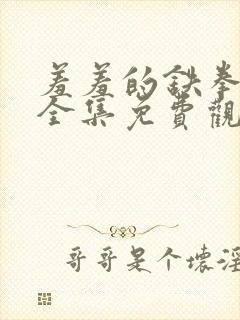 羞羞的铁拳
全集免費觀
哥哥是个壞淫